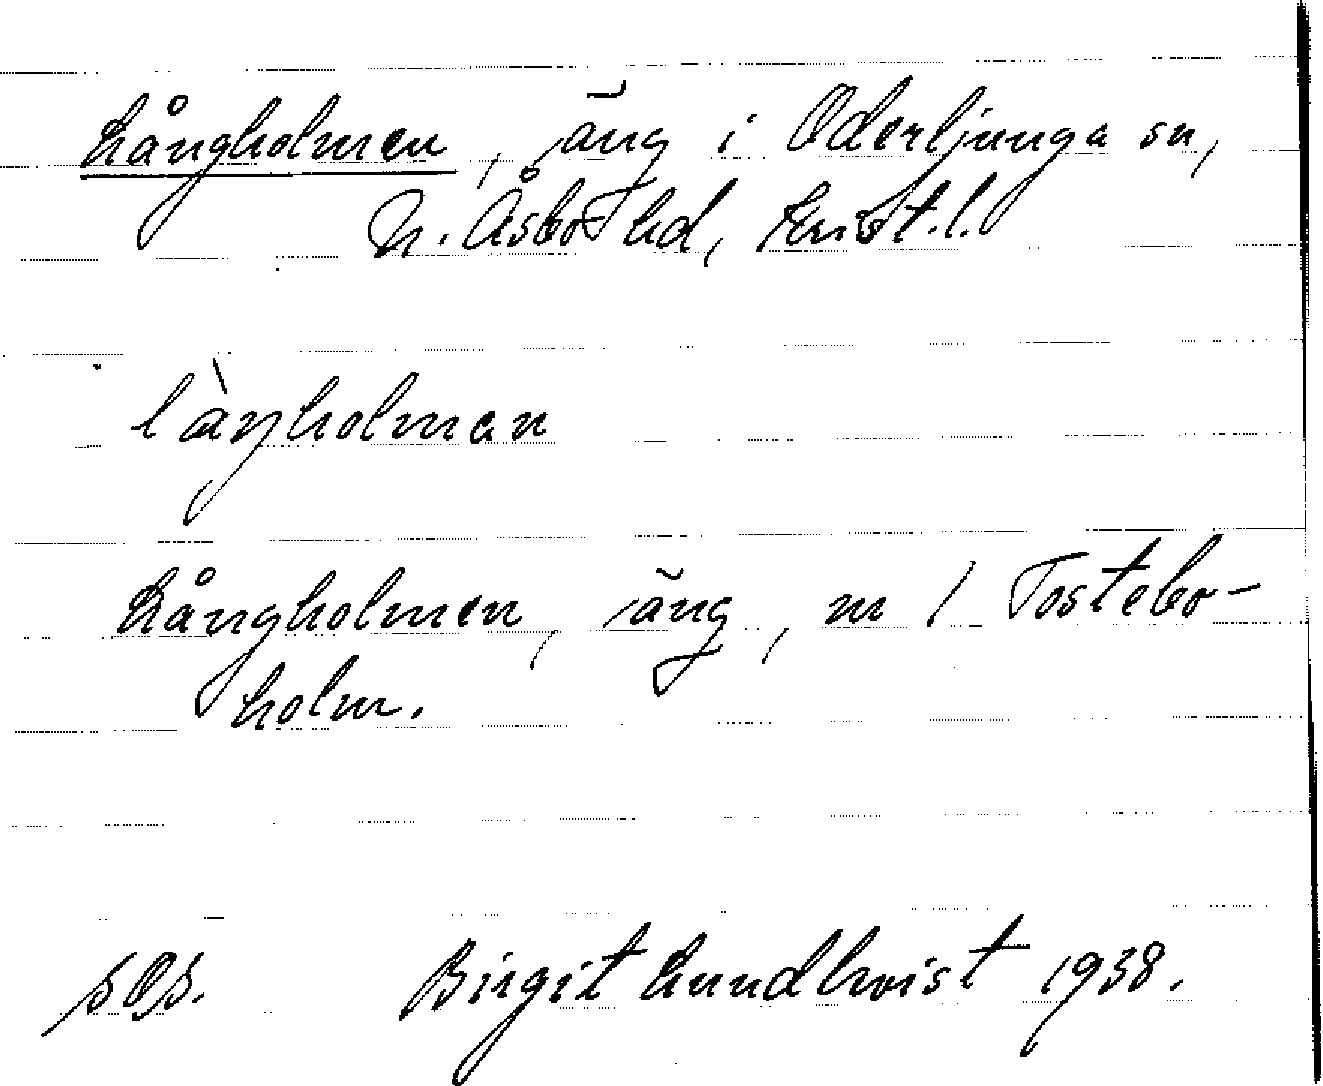 Långholmen, äng i Oderljunga sn,
N. Åsbo hd, Krist. l.
làŋholman
Långholmen, äng, m / Tostebo-
holm.
SOS. Birgit Lundkvist 1938.